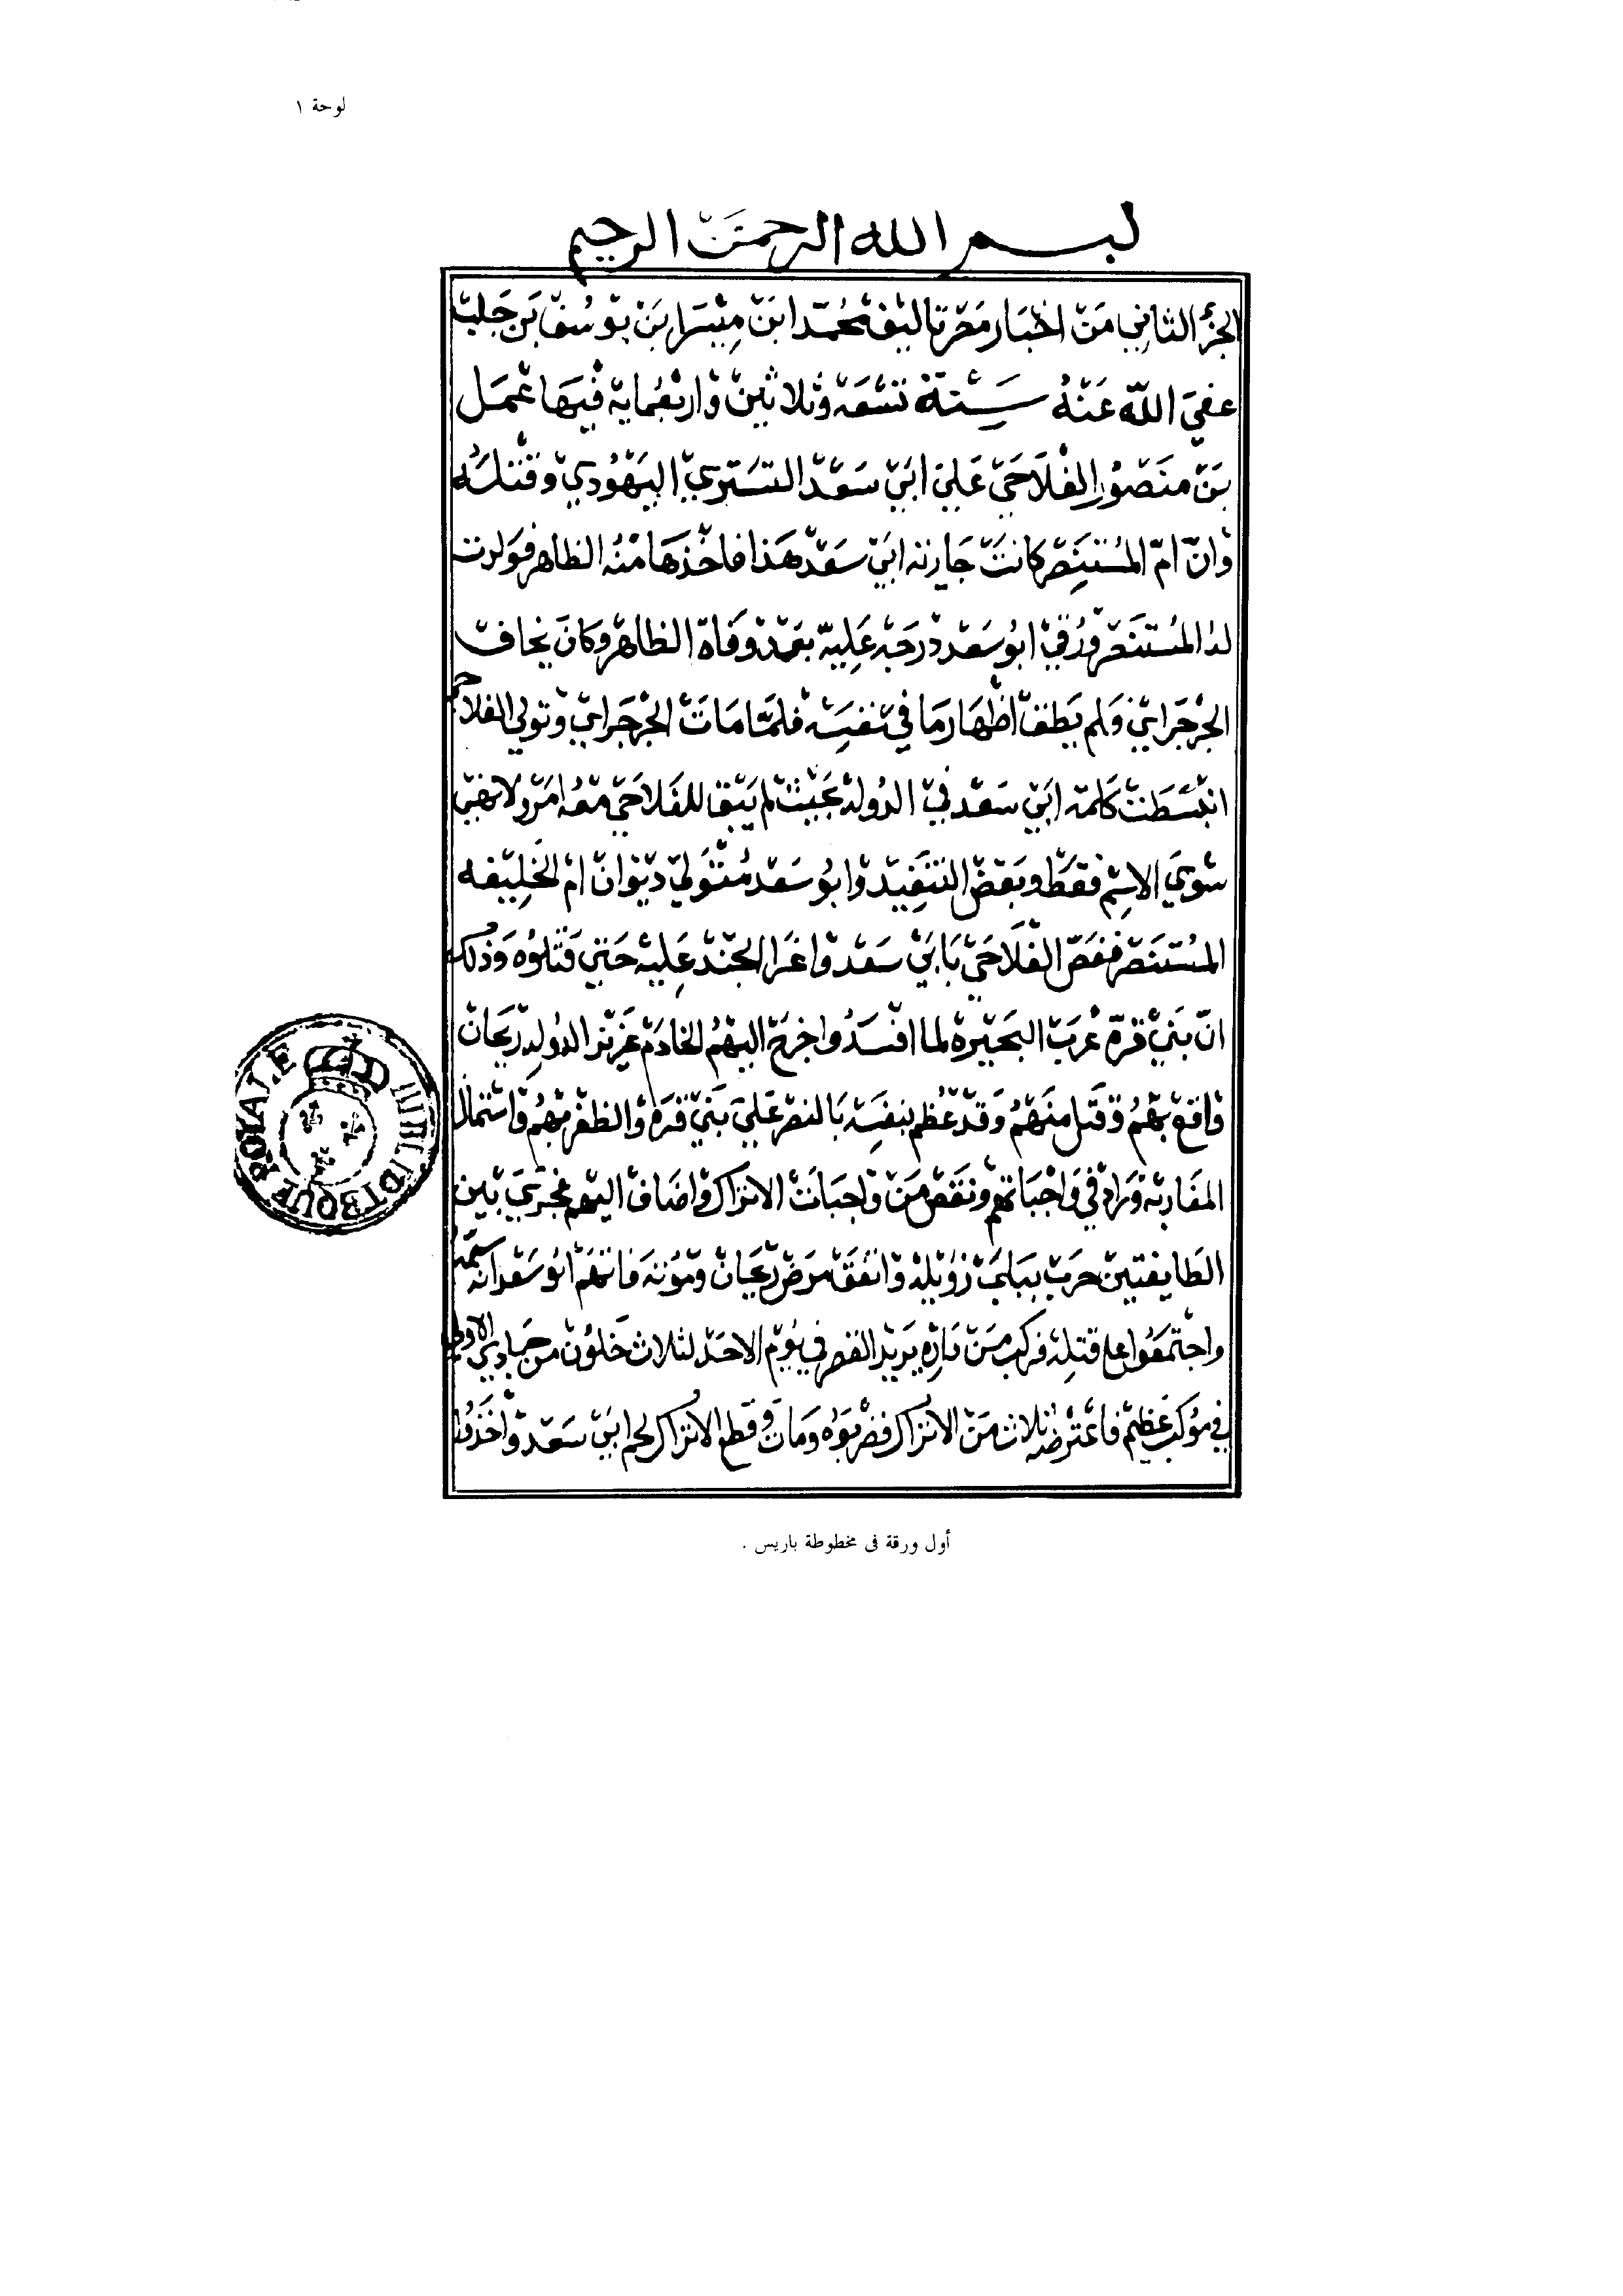 لوحة ١
بسم الله الرحمن الرحيم
الجزء الثاني من اخبار مصر تاليف محمد ابن ميسر ابن يوسف بن جلب
عفي الله عنه سنة تسعه وثلاثين واربعمايه فيها عمل
بن منصور الفلاحي علي ابي سعد التستري اليهودي وقتله
وان ام المستنصر كانت جاريه ابي سعد هذا فاخذها منه الظاهر فولدت
له المستنصر ورقي ابو سعد درجه عليه بعد وفاة الظاهر وكان يخاف
الجرجراي ولم يطف اظهار ما في نفسه فلما مات الجرجراي وتولي الفلاحي
انبسطت كلمه ابي سعد في الدوله بحيث لم يبق للفلاحي معه امر ولا نهي
سوي الاسم فقط وبعض التنفيد وابو سعد متولي ديوان ام الخليفه
المستنصر فغص الفلاحي بابي سعد واغرا الجند عليه حتي قتلوه وذلك
ان بني قره عرب البحيره لما افسدوا اخرج اليهم الخادم عزيز الدوله ريحان
واقع بهم وقتل منهم وقد عظم بنفسه بالنصر علي بني قره والظفر بهم واستمال
المغاربه وزاد في واجباتهم ونقص من واجبات الاتراك واضاف اليهم فجري بين
الطايفتين حرب بباب زويله واتفق مرض ريحان وموته فاتهم ابو سعد انه سمه
واجتمعوا علي قتله فركب من داره يريد القصر في يوم الاحد لثلاث خلون من جمادي الاولي
في موكب عظيم فاعترضه ثلاث من الاتراك فضربوه ومات وقطع الاتراك لحم ابي سعد واخذوا
BIBLIOTHEQUE ROYALE
أول ورقة فى مخطوطة باريس .